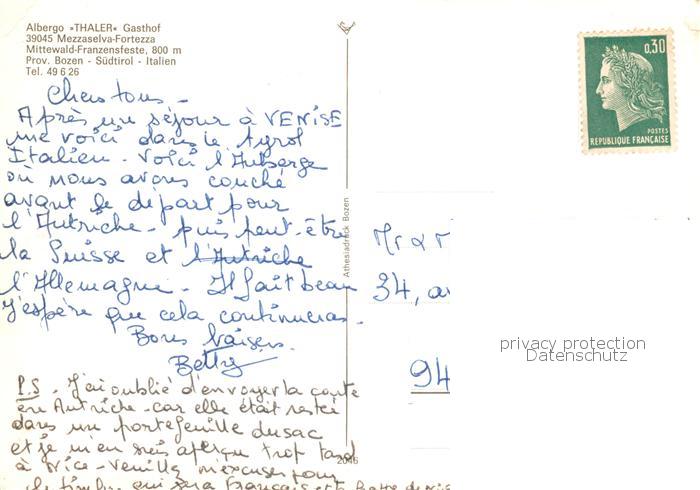 Albergo »THALER« Gasthof
39045 Mezzaselva-Fortezza
Mittewald-Franzensfeste, 800 m
Prov. Bozen - Südtirol - Italien
Tel. 49 6 26
Chers tous -
Après un séjour à VENISE
me voici dans le tyrol
Italien - Voici l'Auberge
où nous avons couché
avant le départ pour
l'Autriche - puis peut-être
la Suisse et l'Autriche
l'Allemagne - Il fait beau
J'espère que cela continueras.
Bons baisers.
Betty
P.S - J'ai oublié d'envoyer la carte
en Autriche - car elle était restée
dans un portefeuille du sac
et je m'en suis aperçu trop tard
à Nice - Veuillez m'excuser pour
le timbre qui sera Français et la Poste de Nice
Athesiadruck Bozen
2046
0,30
POSTES
REPUBLIQUE FRANÇAISE
Mr &
34,
94
privacy protection
Datenschutz